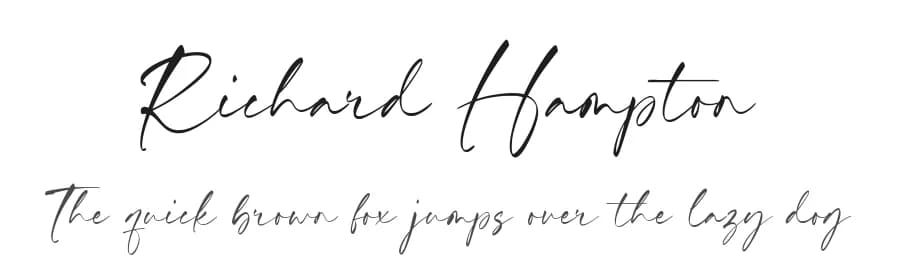 Richard Hampton
The quick brown fox jumps over the lazy dog